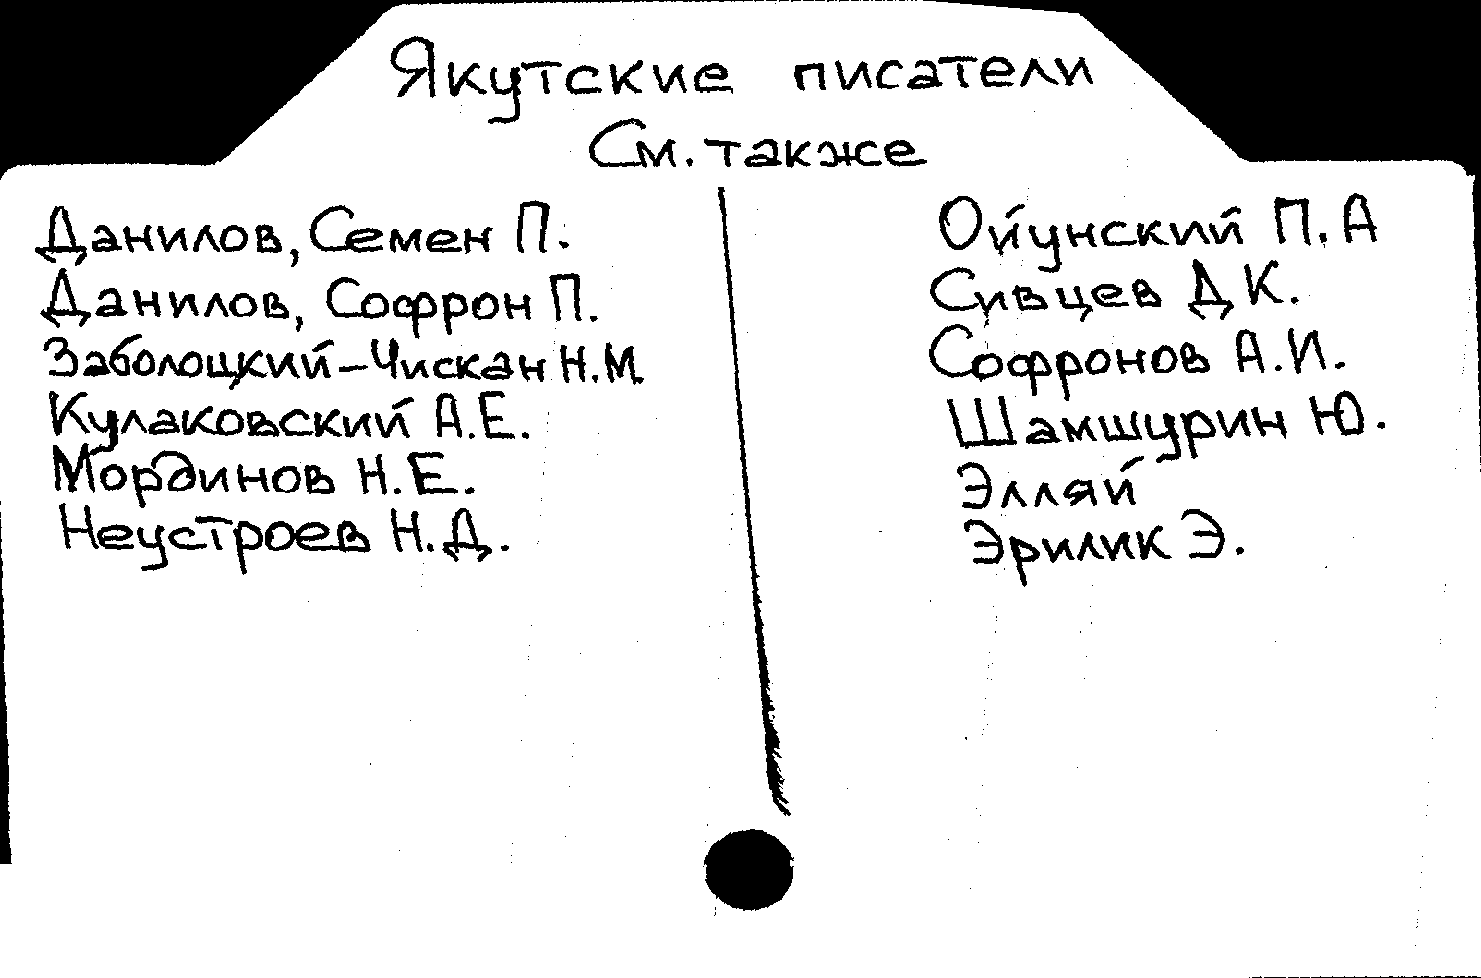 Якутские писатели
См. также
Данилов, Семен П.
Данилов, Софрон П.
Заболоцкий-Чискан Н.М.
Кулаковский А.Е.
Мординов Н.Е.
Неустроев Н.Д.
Ойунский П.А
Сивцев Д К.
Софронов А.И.
Шамшурин Ю.
Элляй
Эрилик Э.